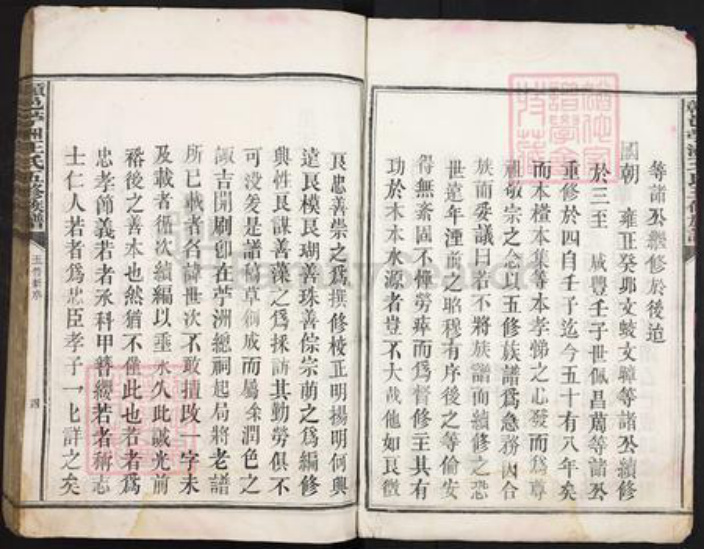 等諸公繼修於後迨
國朝 雍正癸卯文蛟文韓等諸公續修
於三至 咸豐壬子世佩昌蘭等諸公
重修於四自壬子迄今五十有八年矣
而木楂本集等本孝悌之心發而為尊
祖敬宗之念以五修族譜為急務因合
族而妥議曰若不將族譜而續修之恐
世遠年湮前之昭穆有序後之等倫安
得無紊固不憚勞瘁而為督修主其有
功於木本水源者豈不大哉他如良徵
良忠善崇之為撰修校正明揚明何興
達良模良瑚善珠善倧宗萌之為編修
典性良謀善藻之為採訪其勤勞俱不
可沒爰是譜稿草創成而屬余潤色之
諏吉開刷卽在苧洲總祠起局將老譜
所已載者名諱世次不敢擅改一字未
及載者循次續編以垂永久此誠光前
裕後之善本也然猶不僅此也若者為
忠孝節義若者永科甲簪纓若者稱志
士仁人若者為忠臣孝子一七詳之矣
洲王氏五修族譜
玉管新序
四